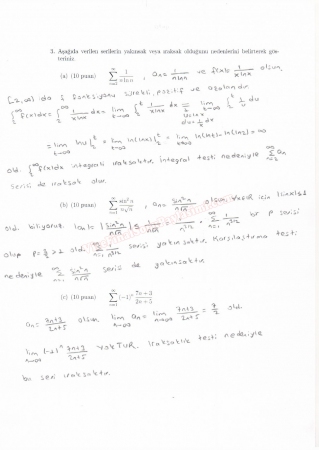 3. Aşağıda verilen serilerin yakınsak veya ıraksak olduğunu nedenlerini belirterek gös-
teriniz
(a) (10 puan) ∑_{n=2}^{∞} 1/(n ln n) , a_n = 1/(n ln n) ve f(x) = 1/(x ln x) olsun.
[2,∞) da f fonksiyonu sürekli, pozitif ve azalandır.
∫_2^∞ f(x)dx = ∫_2^∞ 1/(x ln x) dx = lim_{t→∞} ∫_2^t 1/(x ln x) dx = lim_{t→∞} ∫_2^t 1/u du
u = ln x
du = 1/x dx
= lim_{t→∞} ln u |_2^t = lim_{t→∞} ln(ln x) |_2^t = lim_{t→∞} ln(ln t) - ln(ln 2) = ∞
old. ∫_2^∞ f(x)dx integrali ıraksaktır. İntegral testi nedeniyle ∑_{n=2}^{∞} a_n
serisi de ıraksak olur.
(b) (10 puan) ∑_{n=1}^{∞} sin²n/(n√n) , a_n = sin²n/(n√n) olsun. için |sin x| ≤ 1
old. biliyoruz. |a_n| = |sin²n/(n√n)| ≤ 1/(n√n) = 1/n^{3/2} , ∑_{n=1}^{∞} 1/n^{3/2} bir p serisi
olup p = 3/2 > 1 old. ∑_{n=1}^{∞} serisi yakınsaktır. Karşılaştırma testi
nedeniyle ∑_{n=1}^{∞} sin²n/(n√n) serisi de yakınsaktır.
(c) (10 puan) ∑_{n=1}^{∞} (-1)^n (7n+3)/(2n+5)
a_n = (7n+3)/(2n+5) olsun lim_{n→∞} a_n = lim_{n→∞} (7n+3)/(2n+5) = 7/2 old.
lim_{n→∞} (-1)^n (7n+3)/(2n+5) YOKTUR. Iraksaklık testi nedeniyle
bu seri ıraksaktır.